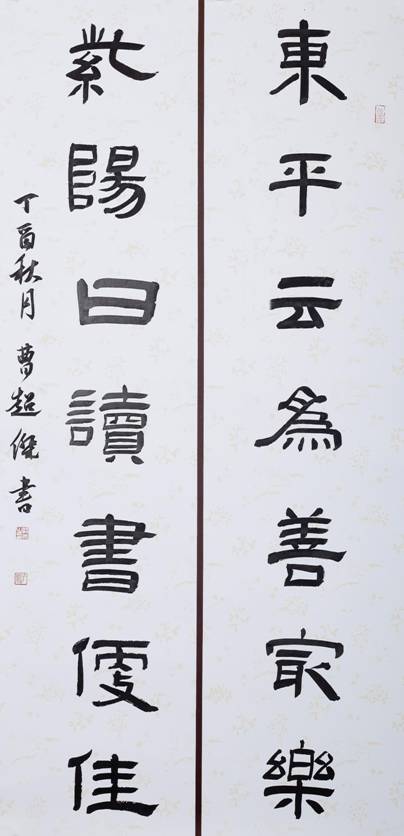 東平云為善最樂
紫陽曰讀書便佳
丁酉秋月 曹超傑書